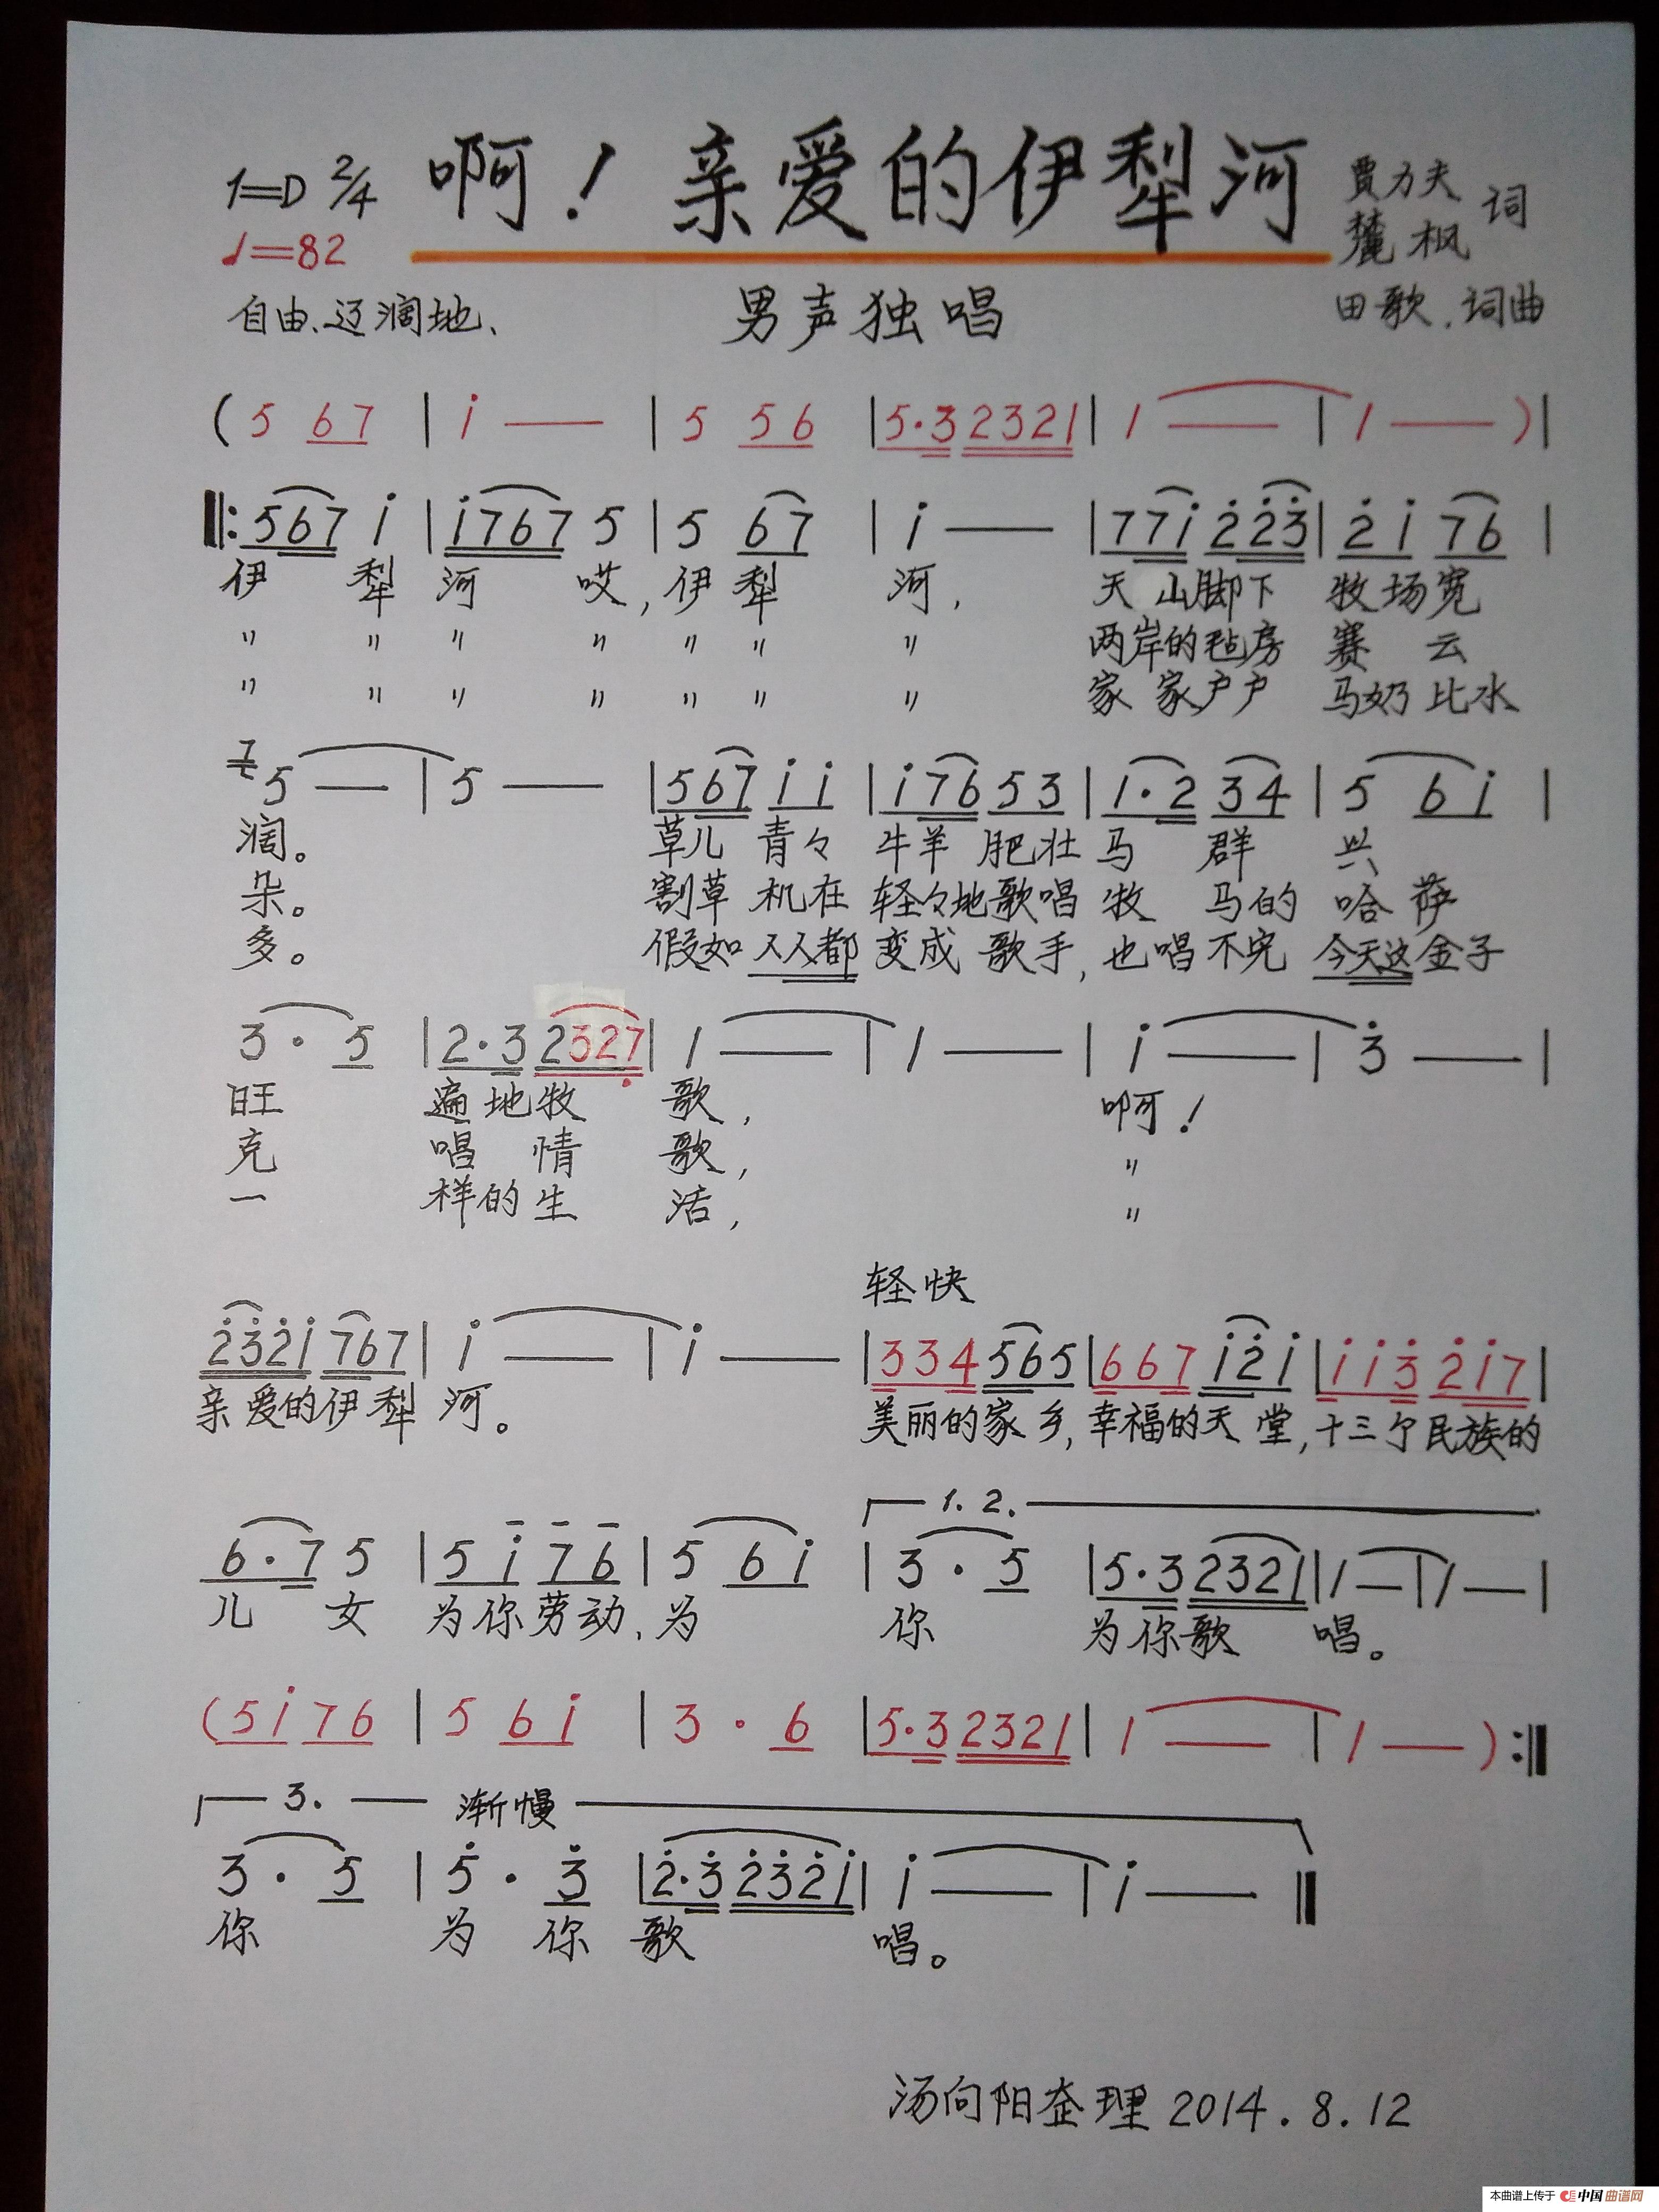 1=D 2/4 啊！亲爱的伊犁河 贾力夫 词
♩=82 麓枫
自由、辽阔地、 男声独唱 田歌、词曲
( 5 6 7 | i — | 5 5 6 | 5·3 2321 | 1 — | 1 — ) |
‖: 567 i | i767 5 | 5 67 | i — | 77i 223 | 2 i 76 |
伊 犁 河 哎, 伊 犁 河, 天 山脚下 牧场宽
〃 〃 〃 〃 〃 〃 〃 两岸的毡房 赛 云
〃 〃 〃 〃 〃 〃 〃 家 家户户 马奶比水
7 5 — | 5 — | 567 i i | i76 53 | 1·2 34 | 5 6 i |
阔。 草儿 青々 牛羊 肥壮 马 群 兴
朵。 割草 机在 轻々地歌唱 牧 马的 哈萨
多。 假如 人人都 变成 歌手, 也唱不完 今天这金子
3· 5 | 2·3 2327 | 1 — | 1 — | i — | 3 — |
旺 遍地牧 歌, 啊!
克 唱 情 歌, 〃
一 样的生 活, 〃
轻快
232i 767 | i — | i — | 334 565 | 667 i2i | ii3 2i7 |
亲爱的伊犁 河。 美丽的家乡, 幸福的天堂, 十三个民族的
1. 2.
6·7 5 | 5 i 7 6 | 5 6 i | 3· 5 | 5·3 2321 | 1 — | 1 — |
儿 女 为你劳动、为 你 为你歌 唱。
( 5 i 7 6 | 5 6 i | 3 · 6 | 5·3 2321 | 1 — | 1 — ) :‖
3. 渐慢
3 · 5 | 5 · 3 | 2·3 232i | i — | i — ‖
你 为 你 歌 唱。
汤向阳整理 2014.8.12
本曲谱上传于 中国曲谱网